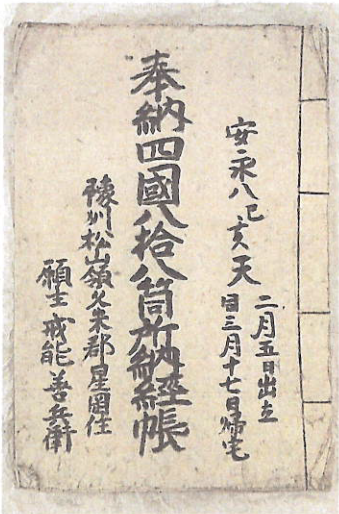 安永八己亥天
二月五日出立
同三月十七日帰宅
奉納四國八拾八箇所納経帳
豫州松山領久米郡星岡住
願主戒能善兵衛